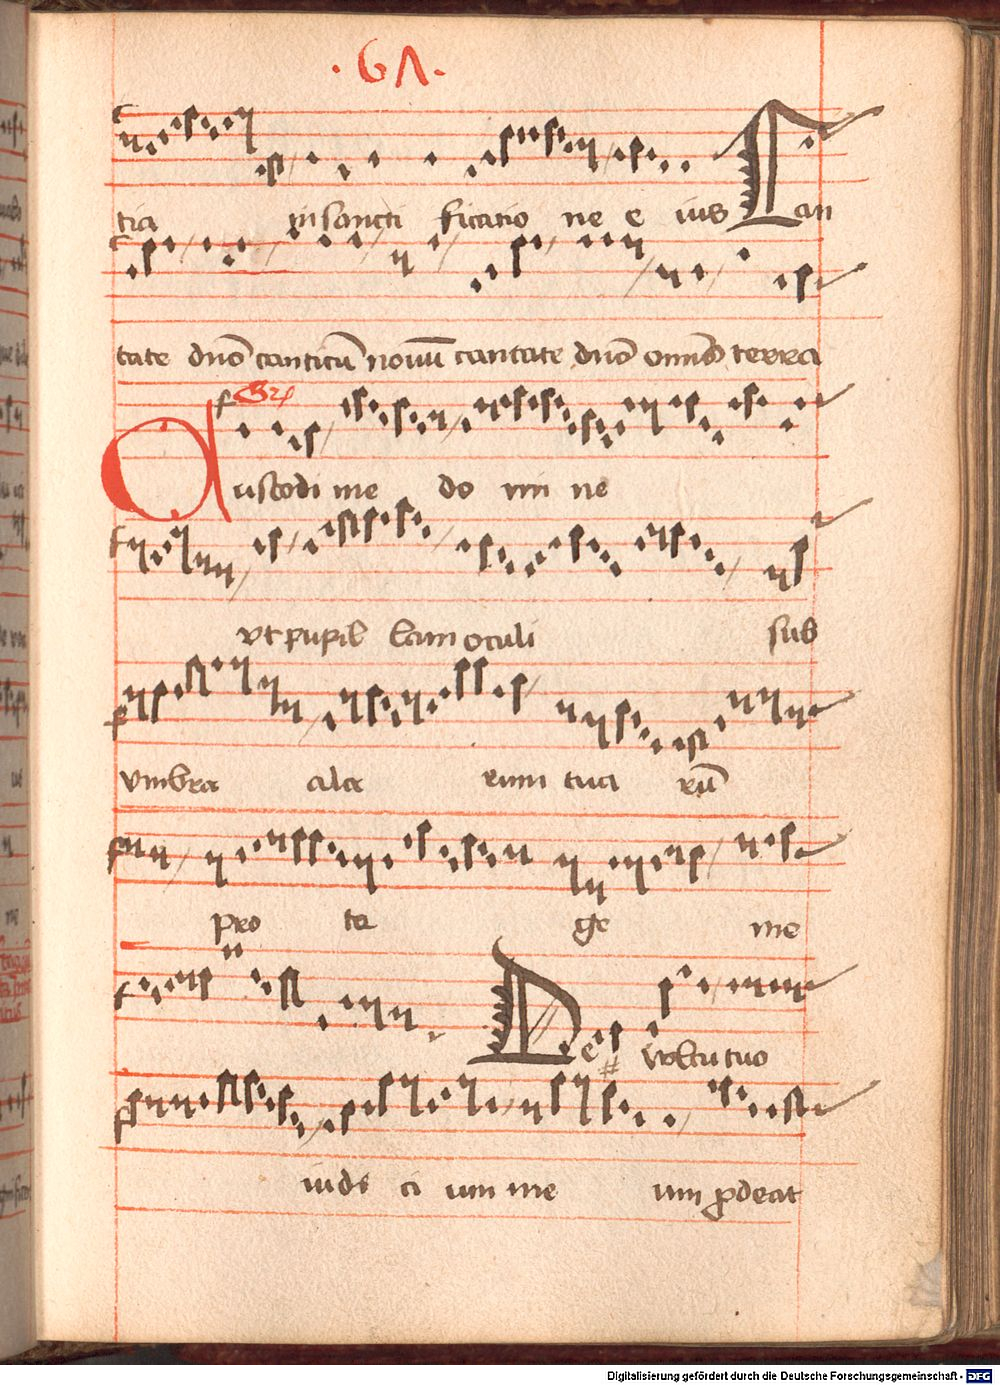 .61.
tia in sancti ficatio ne e ius Can
tate dno canticu nouu cantate dno omnis terra
Gr
Custodi me do mi ne
vt pupil lam oculi sub
vmbra ala rum tua ru
pro te ge me
De voltu tuo
iudi ci um me um pdeat
Digitalisierung gefördert durch die Deutsche Forschungsgemeinschaft - DFG